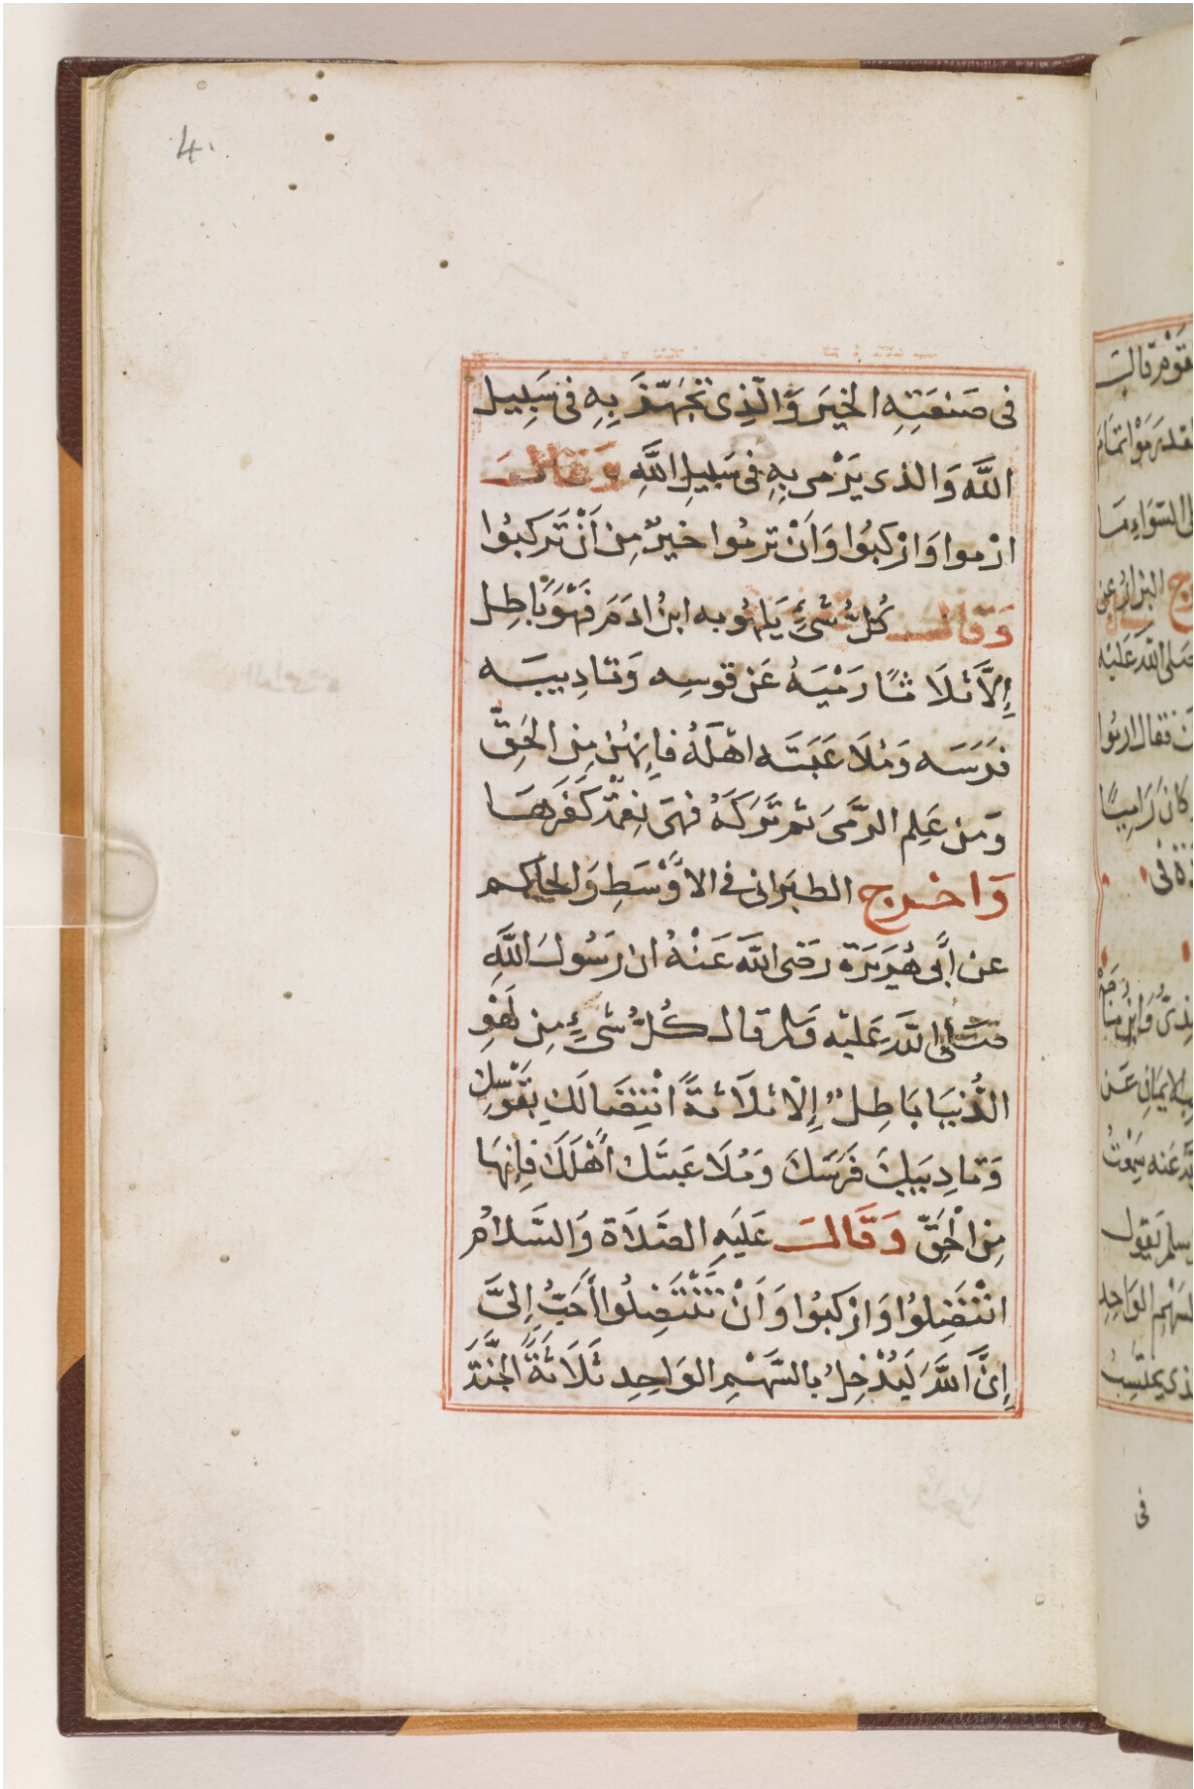 4.
فى صَنعَتِهِ الخيَر وَالَّذِى تَجَهّزَ بِهِ فى سَبِيل
اللَّه وَالذى يَرْمى بِهِ فى سَبِيلِ اللَّهِ وَقَالَ
ارْموا وَارْكبُوا وَاَنْ ترمُوا خيرٌ مِن اَنْ تَركبُوا
وَقَالَ كُلُّ شَىْءٍ يَلهُو به ابنُ ادَمَ فَهْوَ بَاطِل
إِلَّا ثَلَاثًا رَمْيَهُ عَن قوسِه وَتادِيبَه
فرَسَه وَمُلَاعَبَتَه اهْلَهُ فاِنهُن مِن الحَقّ
وَمَن عَلِم الرَّمىَ ثم تَرَكَهُ فهىَ نِعمَةٌ كَفَرَهَا
وَاخرج الطبَرانى فى الاَوْسَطِ وَالحاكِم
عن اَبى هُرَيرَة رَضى اللَّه عَنْهُ ان رَسُولَ اللَّهِ
صَلى اللَّه عَليْه وَسلم قال كُلُّ شَىْءٍ مِن لَهْوِ
الدُّنيَا بَاطِلٌ إِلَّا ثلَاثَةً انْتِضَالَكَ بِقَوْسِكَ
وَتادِيبَكَ فَرَسَكَ وَمُلَاعَبتَكَ أَهْلَكَ فاِنهَا
مِنَ الْحَقّ وَقَالَ عَلَيهِ الصَّلَاة وَالسَّلَامُ
انْتَضِلُوا وَارْكبُوا وَاَنْ تَنْتَضِلُوا أَحَبُّ إِلىَّ
إِنَّ اللَّهَ لَيُدْخِلُ بالسَّهْمِ الوَاحِدِ ثَلَاثَةً الجَنَّةَ
فى